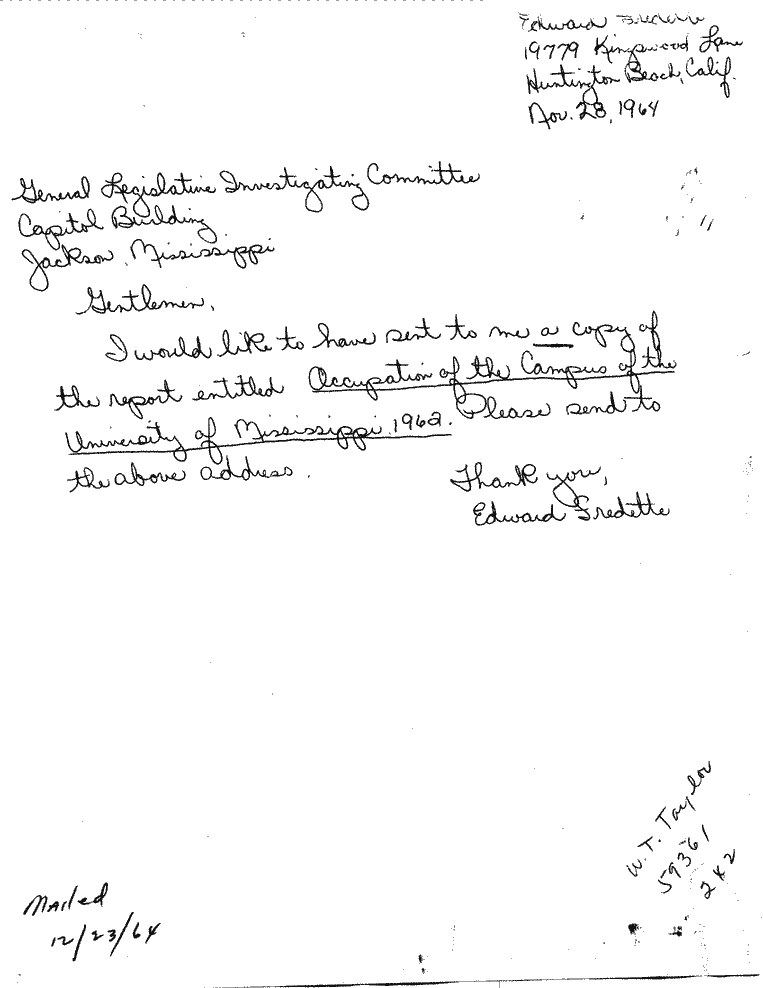 Edward Fredette
19779 Kingswood Lane
Huntington Beach, Calif.
Nov. 28, 1964
General Legislative Investigating Committee
Capitol Building
Jackson, Mississippi
Gentlemen,
I would like to have sent to me a copy of
the report entitled Occupation of the Campus of the
University of Mississippi 1962. Please send to
the above address.
Thank you,
Edward Fredette
W. T. Taylor
59361
2x2
Mailed
12/23/64